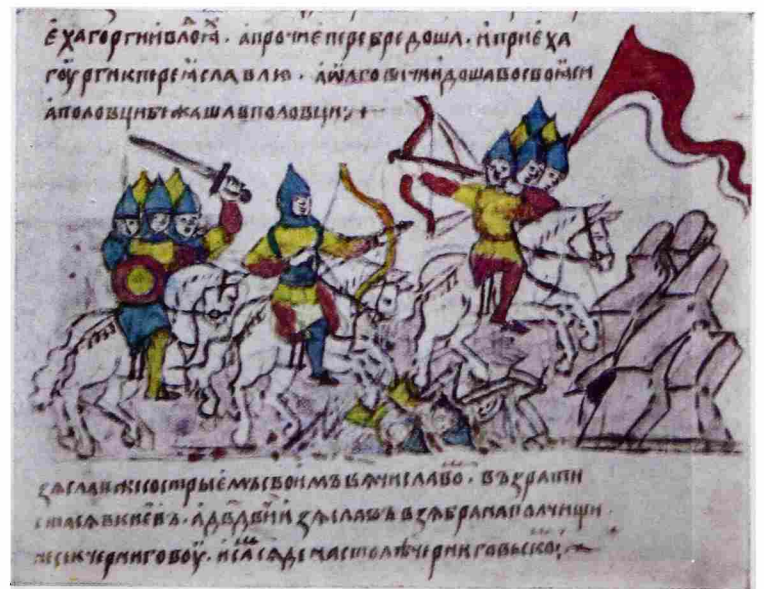 ѣха горгии в лоⷣи . а прочие перебредоша . и приѣха
гоурги к переꙗславлю . а ѡлговичи идоша во своꙗси
а половци бежаша в половци
зѧслав же со стрыемъ своимъ вѧчиславоⷨ . възрати
стасѧ в киевъ . а изѧславъ взѧ брата на полчищи
несе к черниговоу . и сѧде на столѣ черниговьскоⷨ